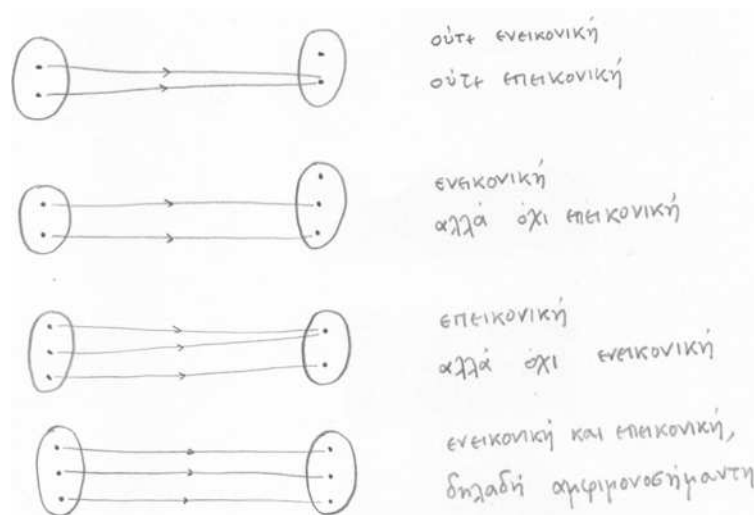 ούτε ενεικονική
ούτε επεικονική
ενεικονική
αλλά όχι επεικονική
επεικονική
αλλά όχι ενεικονική
ενεικονική και επεικονική,
δηλαδή αμφιμονοσήμαντη